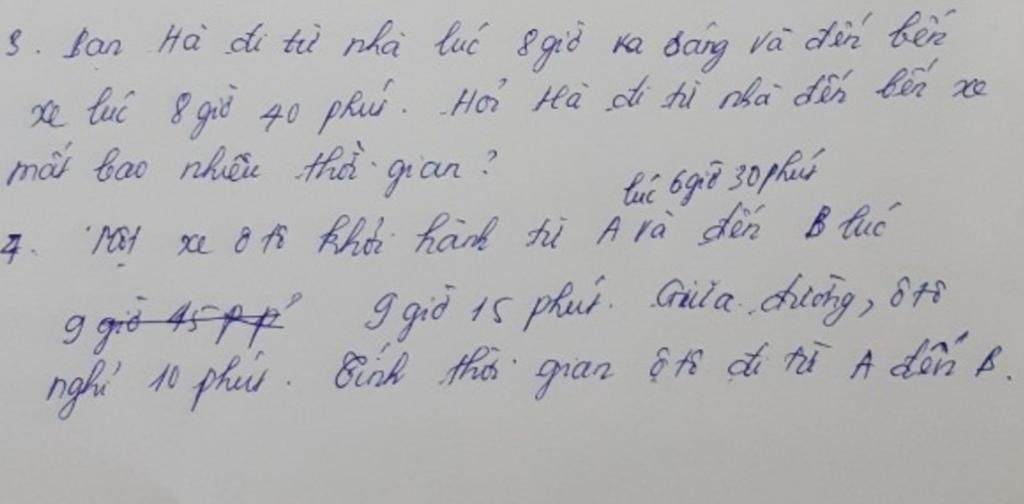 3. Bạn Hà đi từ nhà lúc 8 giờ sáng và đến bến
xe lúc 8 giờ 40 phút. Hỏi Hà đi từ nhà đến bến xe
mất bao nhiêu thời gian?
lúc 6 giờ 30 phút
4. Một xe ô tô khởi hành từ A và đến B lúc
9 giờ 15 phút. Giữa đường, ô tô
nghỉ 10 phút. Tính thời gian ô tô đi từ A đến B.